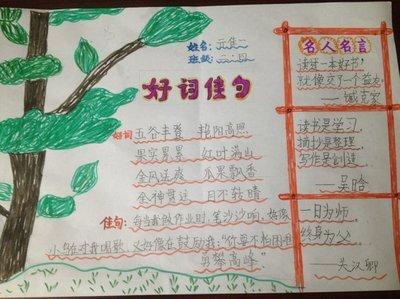 姓名:
班级:
好词佳句
好词 五谷丰登 艳阳高照
果实累累 红叶满山
金风送爽 瓜果飘香
全神贯注 目不转睛
佳句: 每当我做作业时,笔沙沙响,好像
小鸟在对我唱歌,又好像在鼓励我:“你要不怕困难
勇攀高峰”
名人名言
读过一本好书,
就像交了一个益友
——臧克家
读书是学习,
摘抄是整理,
写作是创造。
——吴晗
一日为师
终身为父。
——关汉卿